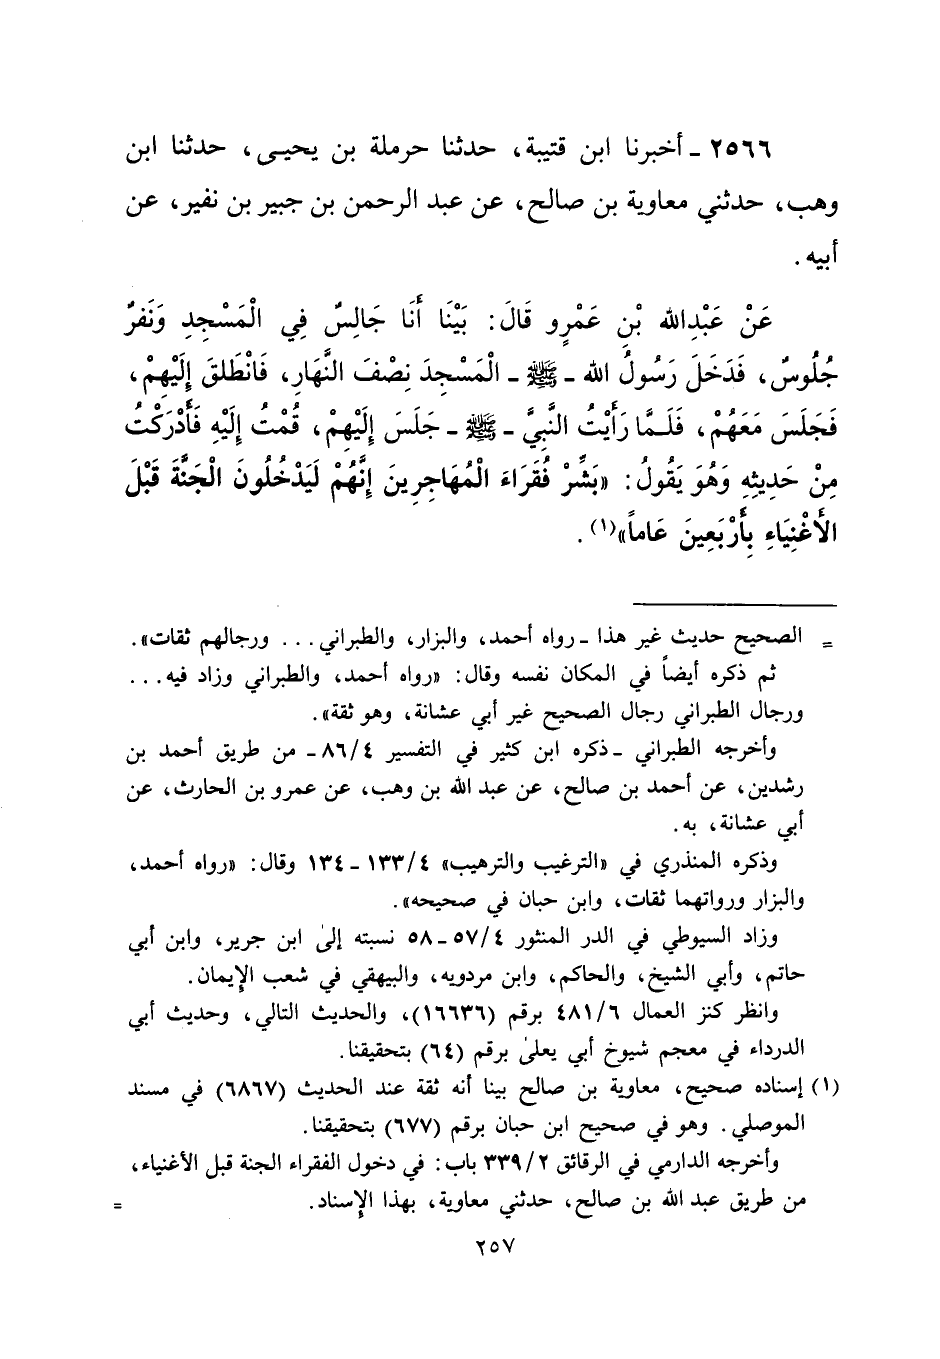 ٢٥٦٦ ـ أخبرنا ابن قتيبة، حدثنا حرملة بن يحيـى، حدثنا ابن
وهب، حدثني معاوية بن صالح، عن عبد الرحمن بن جبير بن نفير، عن
أبيه .
عَنْ عَبْدِالله بْنِ عَمْرٍو قَالَ: بَيْنَا أَنَا جَالِسٌ فِي الْمَسْجِدِ وَنَفَرٌ
جُلُوسٌ، فَدَخَلَ رَسُولُ الله ـ ﷺ ـ الْمَسْجِدَ نِصْفَ النَّهَارِ، فَانْطَلَقَ إِلَيْهِمْ،
فَجَلَسَ مَعَهُمْ، فَلَـمَّا رَأَيْتُ النَّبِيَّ ـ ﷺ ـ جَلَسَ إِلَيْهِمْ، قُمْتُ إِلَيْهِ فَأَدْرَكْتُ
مِنْ حَدِيثِهِ وَهُوَ يَقُولُ: «بَشِّرْ فُقَرَاءَ الْمُهَاجِرِينَ إِنَّهُمْ لَيَدْخُلُونَ الْجَنَّةَ قَبْلَ
الأَغْنِيَاءِ بِأَرْبَعِينَ عَاماً»(١) .
= الصحيح حديث غير هذا ـ رواه أحمد، والبزار، والطبراني... ورجالهم ثقات».
ثم ذكره أيضاً في المكان نفسه وقال: «رواه أحمد، والطبراني وزاد فيه...
ورجال الطبراني رجال الصحيح غير أبي عشانة، وهو ثقة».
وأخرجه الطبراني ـ ذكره ابن كثير في التفسير ٨٦/٤ ـ من طريق أحمد بن
رشدين، عن أحمد بن صالح، عن عبد الله بن وهب، عن عمرو بن الحارث، عن
أبي عشانة، به.
وذكره المنذري في «الترغيب والترهيب» ١٣٣/٤ ـ ١٣٤ وقال: «رواه أحمد،
والبزار ورواتهما ثقات، وابن حبان في صحيحه».
وزاد السيوطي في الدر المنثور ٥٧/٤ ـ ٥٨ نسبته إلىٰ ابن جرير، وابن أبي
حاتم، وأبي الشيخ، والحاكم، وابن مردويه، والبيهقي في شعب الإِيمان.
وانظر كنز العمال ٤٨١/٦ برقم (١٦٦٣٦)، والحديث التالي، وحديث أبي
الدرداء في معجم شيوخ أبي يعلىٰ برقم (٦٤) بتحقيقنا.
(١) إسناده صحيح، معاوية بن صالح بينا أنه ثقة عند الحديث (٦٨٦٧) في مسند
الموصلي. وهو في صحيح ابن حبان برقم (٦٧٧) بتحقيقنا.
وأخرجه الدارمي في الرقائق ٣٣٩/٢ باب: في دخول الفقراء الجنة قبل الأغنياء،
من طريق عبد الله بن صالح، حدثني معاوية، بهذا الإِسناد. =
٢٥٧